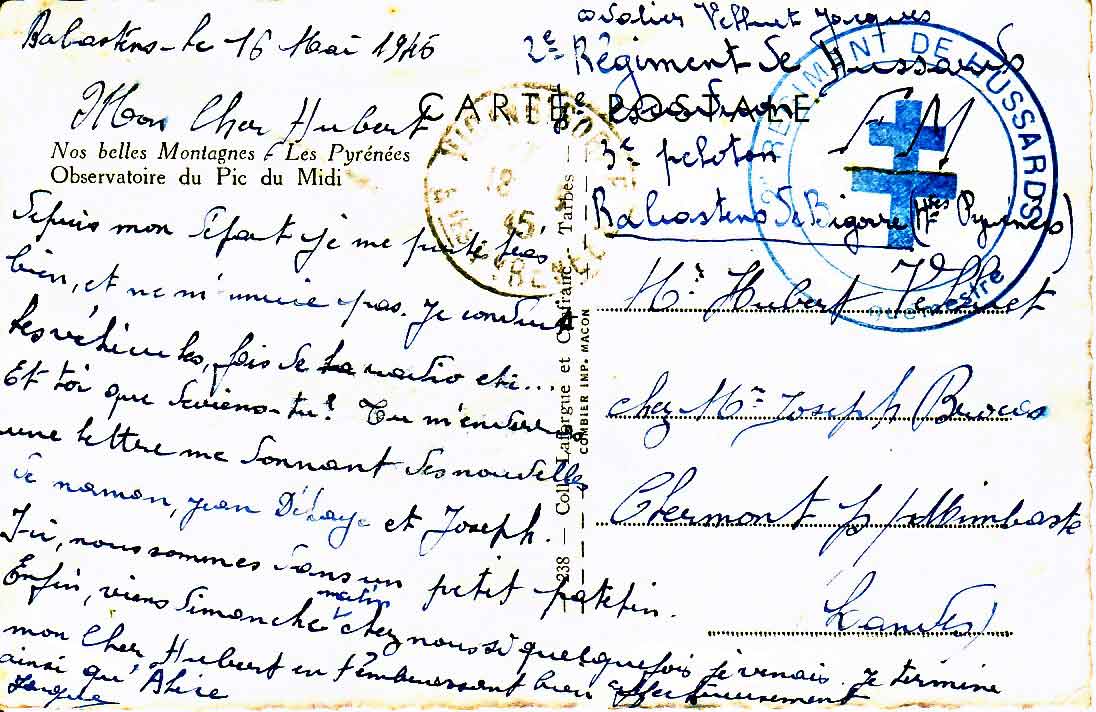 Rabastens - le 16 Mai 1945
Mon Cher Hubert
CARTE POSTALE
Nos belles Montagnes - Les Pyrénées
Observatoire du Pic du Midi
depuis mon départ je me porte très
bien, et ne m'ennuie pas. Je conduis
les véhicules, fais de la radio etc...
Et toi que deviens-tu? Tu m'enverras
une lettre me donnant des nouvelles
de maman, Jean Delaye et Joseph.
Ici, nous sommes dans un petit patelin.
Enfin, viens dimanche matin chez nous si quelquefois je venais. Je termine
mon Cher Hubert en t'embrassant bien affectueusement
ainsi qu'Alice
Jacques
238 — Coll. Laforgue et Canfranc - Tarbes
COMBIER IMP. MACON
cavalier Jacques
2e Régiment de Hussards
escadron
3e peloton
Rabastens de Bigorre (Htes Pyrénées)
Mr Hubert
chez Mr Joseph
Clermont p/ Mimbaste
Landes
REGIMENT DE HUSSARDS
18
45